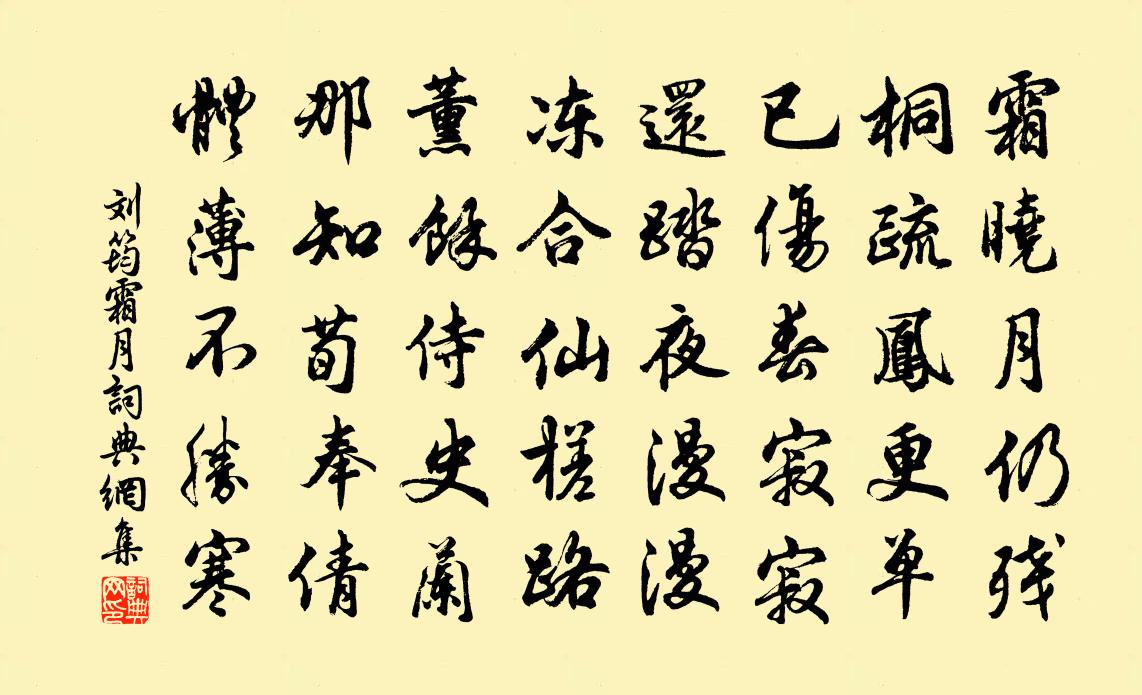 霜曉月仍残
桐疏鳳更单
已傷春寂寂
還踏夜漫漫
冻合仙槎路
薰餘侍史蘭
那知荀奉倩
體薄不勝寒
刘筠霜月詞典網集
詞典網印